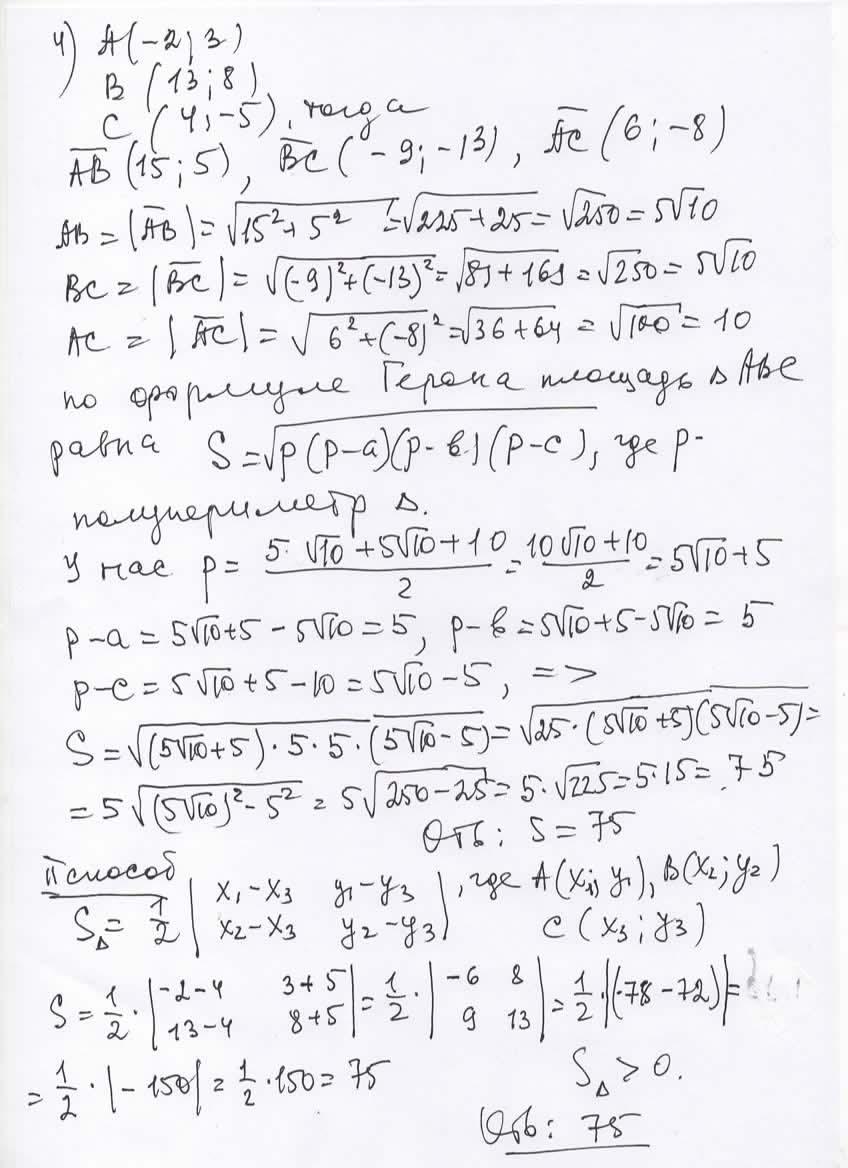 4) A(-2; 3)
B (13; 8)
C (4; -5), тогда
A̅B̅ (15; 5), B̅C̅ (-9; -13), A̅C̅ (6; -8)
AB = |A̅B̅| = √(15² + 5²) = √(225+25) = √250 = 5√10
BC = |B̅C̅| = √((-9)²+(-13)²) = √(81+169) = √250 = 5√10
AC = |A̅C̅| = √(6²+(-8)²) = √(36+64) = √100 = 10
по формуле Герона площадь Δ ABC
равна S = √(p(p-a)(p-в)(p-c)), где p-
полупериметр Δ.
У нас p = (5·√10 + 5√10 + 10)/2 = (10√10+10)/2 = 5√10+5
p-a = 5√10+5-5√10 = 5, p-в = 5√10+5-5√10 = 5
p-c = 5√10+5-10 = 5√10-5, =>
S = √((5√10+5)·5·5·(5√10-5)) = √(25·(5√10+5)(5√10-5)) =
= 5√((5√10)²-5²) = 5√(250-25) = 5·√225 = 5·15 = 75
Отв: S = 75
II способ
S_Δ = 1/2 |x₁-x₃ y₁-y₃; x₂-x₃ y₂-y₃|, где A(x₁; y₁), B(x₂; y₂)
C (x₃; y₃)
S = 1/2 · |-2-4 3+5; 13-4 8+5| = 1/2 · |-6 8; 9 13| = 1/2 · |(-78-72)| =
= 1/2 · |-150| = 1/2 · 150 = 75 S_Δ > 0.
Отв: 75